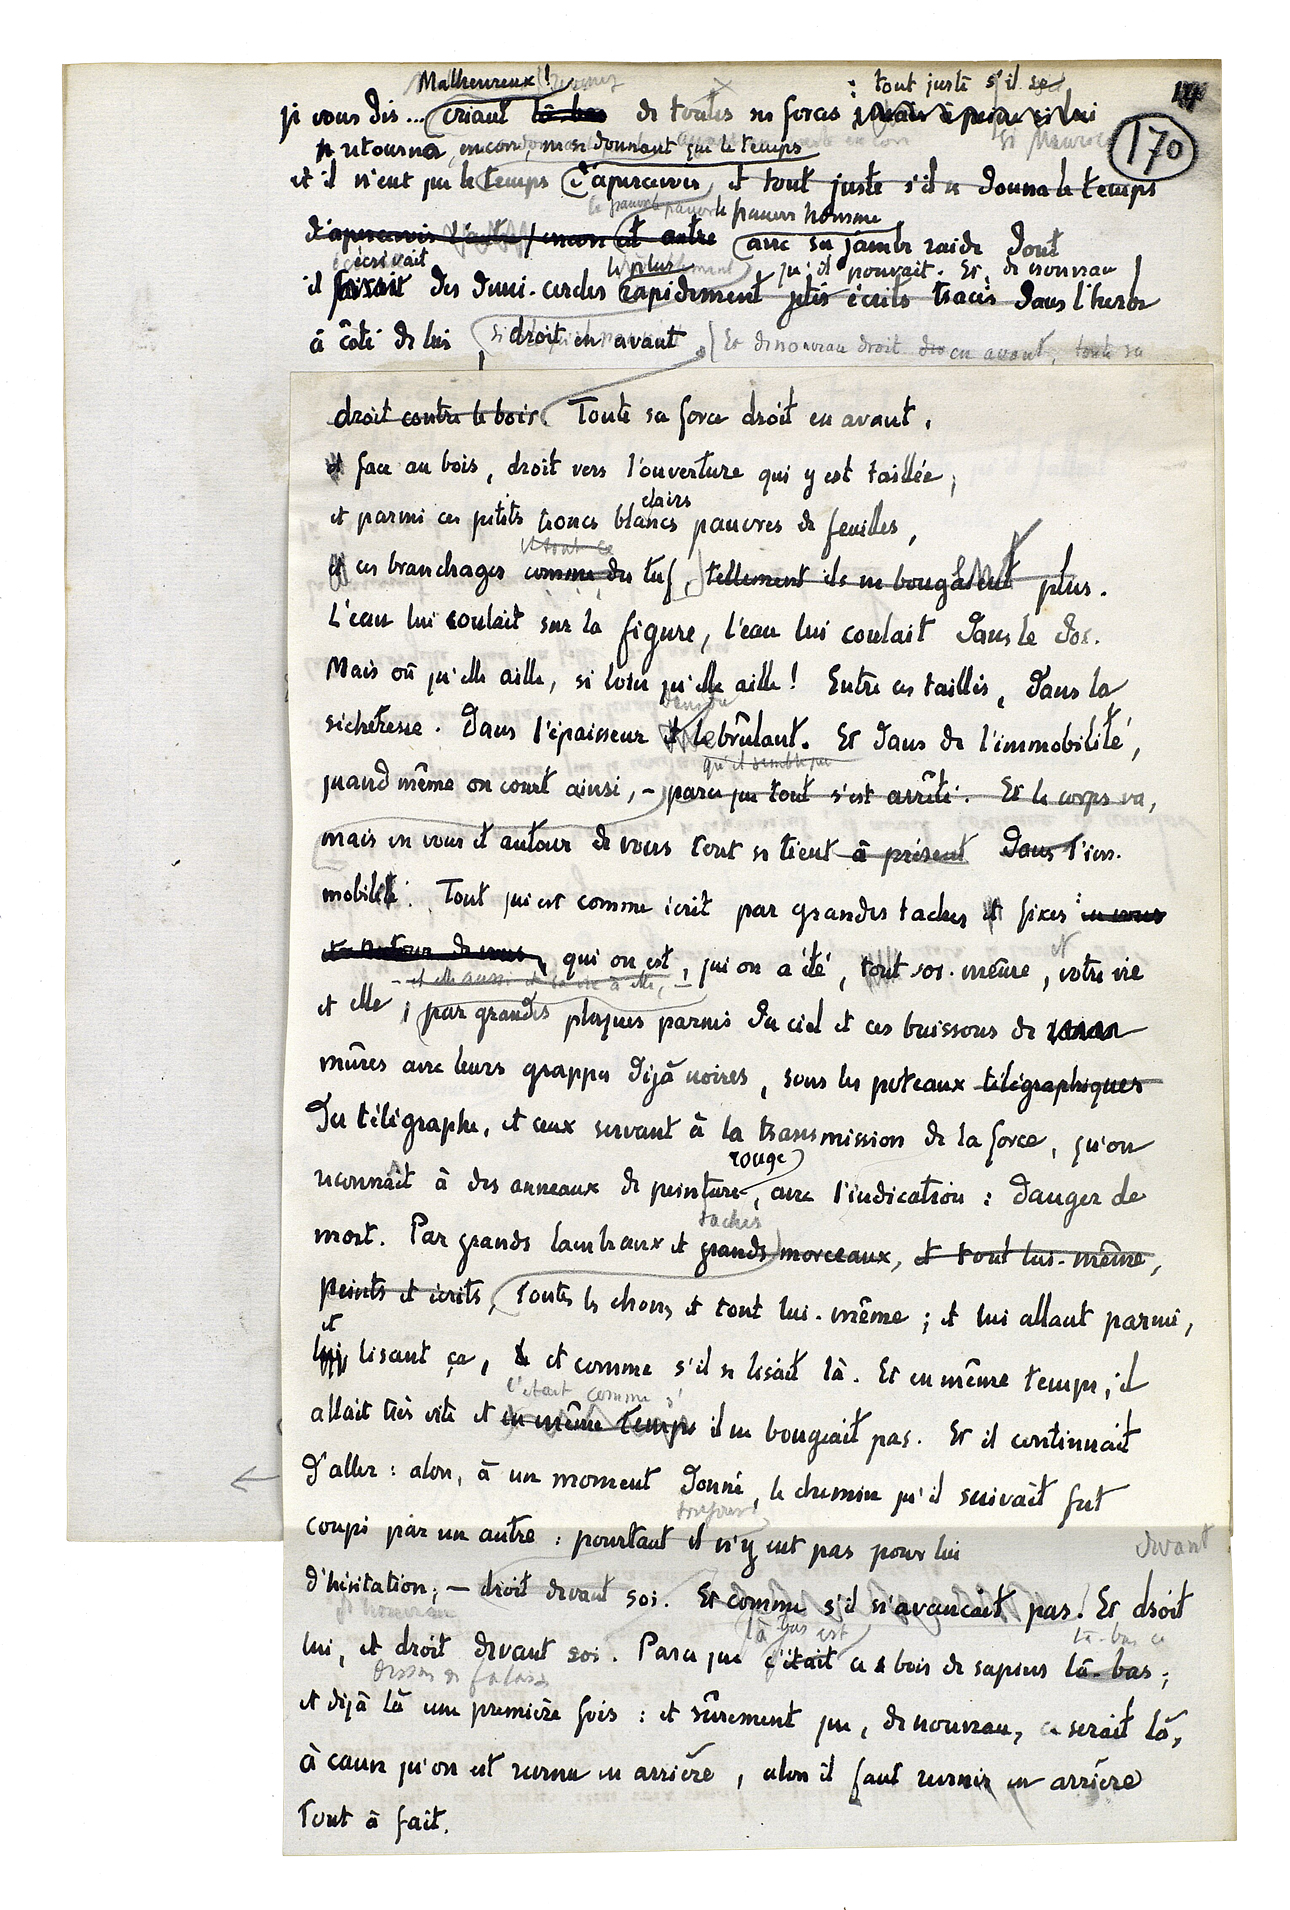 Malheureux !
: tout juste s'il se
je vous dis... criant là-bas de toutes ses forces
170
se retourna, encore, ne se donnant que le temps
et il n'eut que le temps d'apercevoir, et tout juste s'il se donna le temps
le pauvre homme
d'apercevoir l'autre encore cet autre avec sa jambe raide dont
écrivait
le plus qu'il pouvait. Et, de nouveau
il faisait des demi-cercles rapidement tracés dans l'herbe
à côté de lui droit en avant Et de nouveau droit en avant, toute sa
droit contre le bois. Toute sa force droit en avant,
et face au bois, droit vers l'ouverture qui y est taillée,
clairs
et parmi ces petits troncs blancs pauvres de feuilles,
et tout ce
et ces branchages comme du tuf, tellement ils ne bougaient plus.
L'eau lui coulait sur la figure, l'eau lui coulait dans le dos.
Mais où qu'elle aille, si loin qu'elle aille ! Entre ces taillis, dans la
sécheresse. Dans l'épaisseur et le brûlant. Et dans de l'immobilité,
qu'il semble que
quand même on court ainsi, – parce que tout s'est arrêté. Et le corps va,
mais en vous et autour de vous tout se tient à présent dans l'im-
mobilité. Tout qui est comme écrit par grandes taches et fixes : en vous
et autour de vous, qui on est, qui on a été, tout soi-même, et votre vie
– et elle aussi et la vie à elle, –
et elle ; par grandes plaques parmi du ciel et ces buissons de
mûres avec leurs grappes déjà noires, sous les poteaux télégraphiques
du télégraphe, et ceux servant à la transmission de la force, qu'on
rouge
reconnaît à des anneaux de peinture, avec l'indication : danger de
taches
mort. Par grands lambeaux et grands morceaux, et tout lui-même,
peints et écrits, Toutes les choses et tout lui-même ; et lui allant parmi,
et
lui, lisant ça, et comme s'il se lisait là. Et en même temps, il
c'était comme s'
allait très vite et en même temps il ne bougeait pas. Et il continuait
d'aller : alors, à un moment donné, le chemin qu'il suivait fut
toujours
coupé par un autre : pourtant il n'y eut pas pour lui
devant
d'hésitation, – droit devant soi. Et comme s'il n'avançait pas. Et droit
de nouveau
là-bas est
là-bas ce
lui, et droit devant soi. Parce que c'était ce bois de sapins là-bas ;
et déjà là une première fois : et sûrement que, de nouveau, ce serait là,
à cause qu'on est revenu en arrière, alors il faut revenir en arrière
tout à fait.